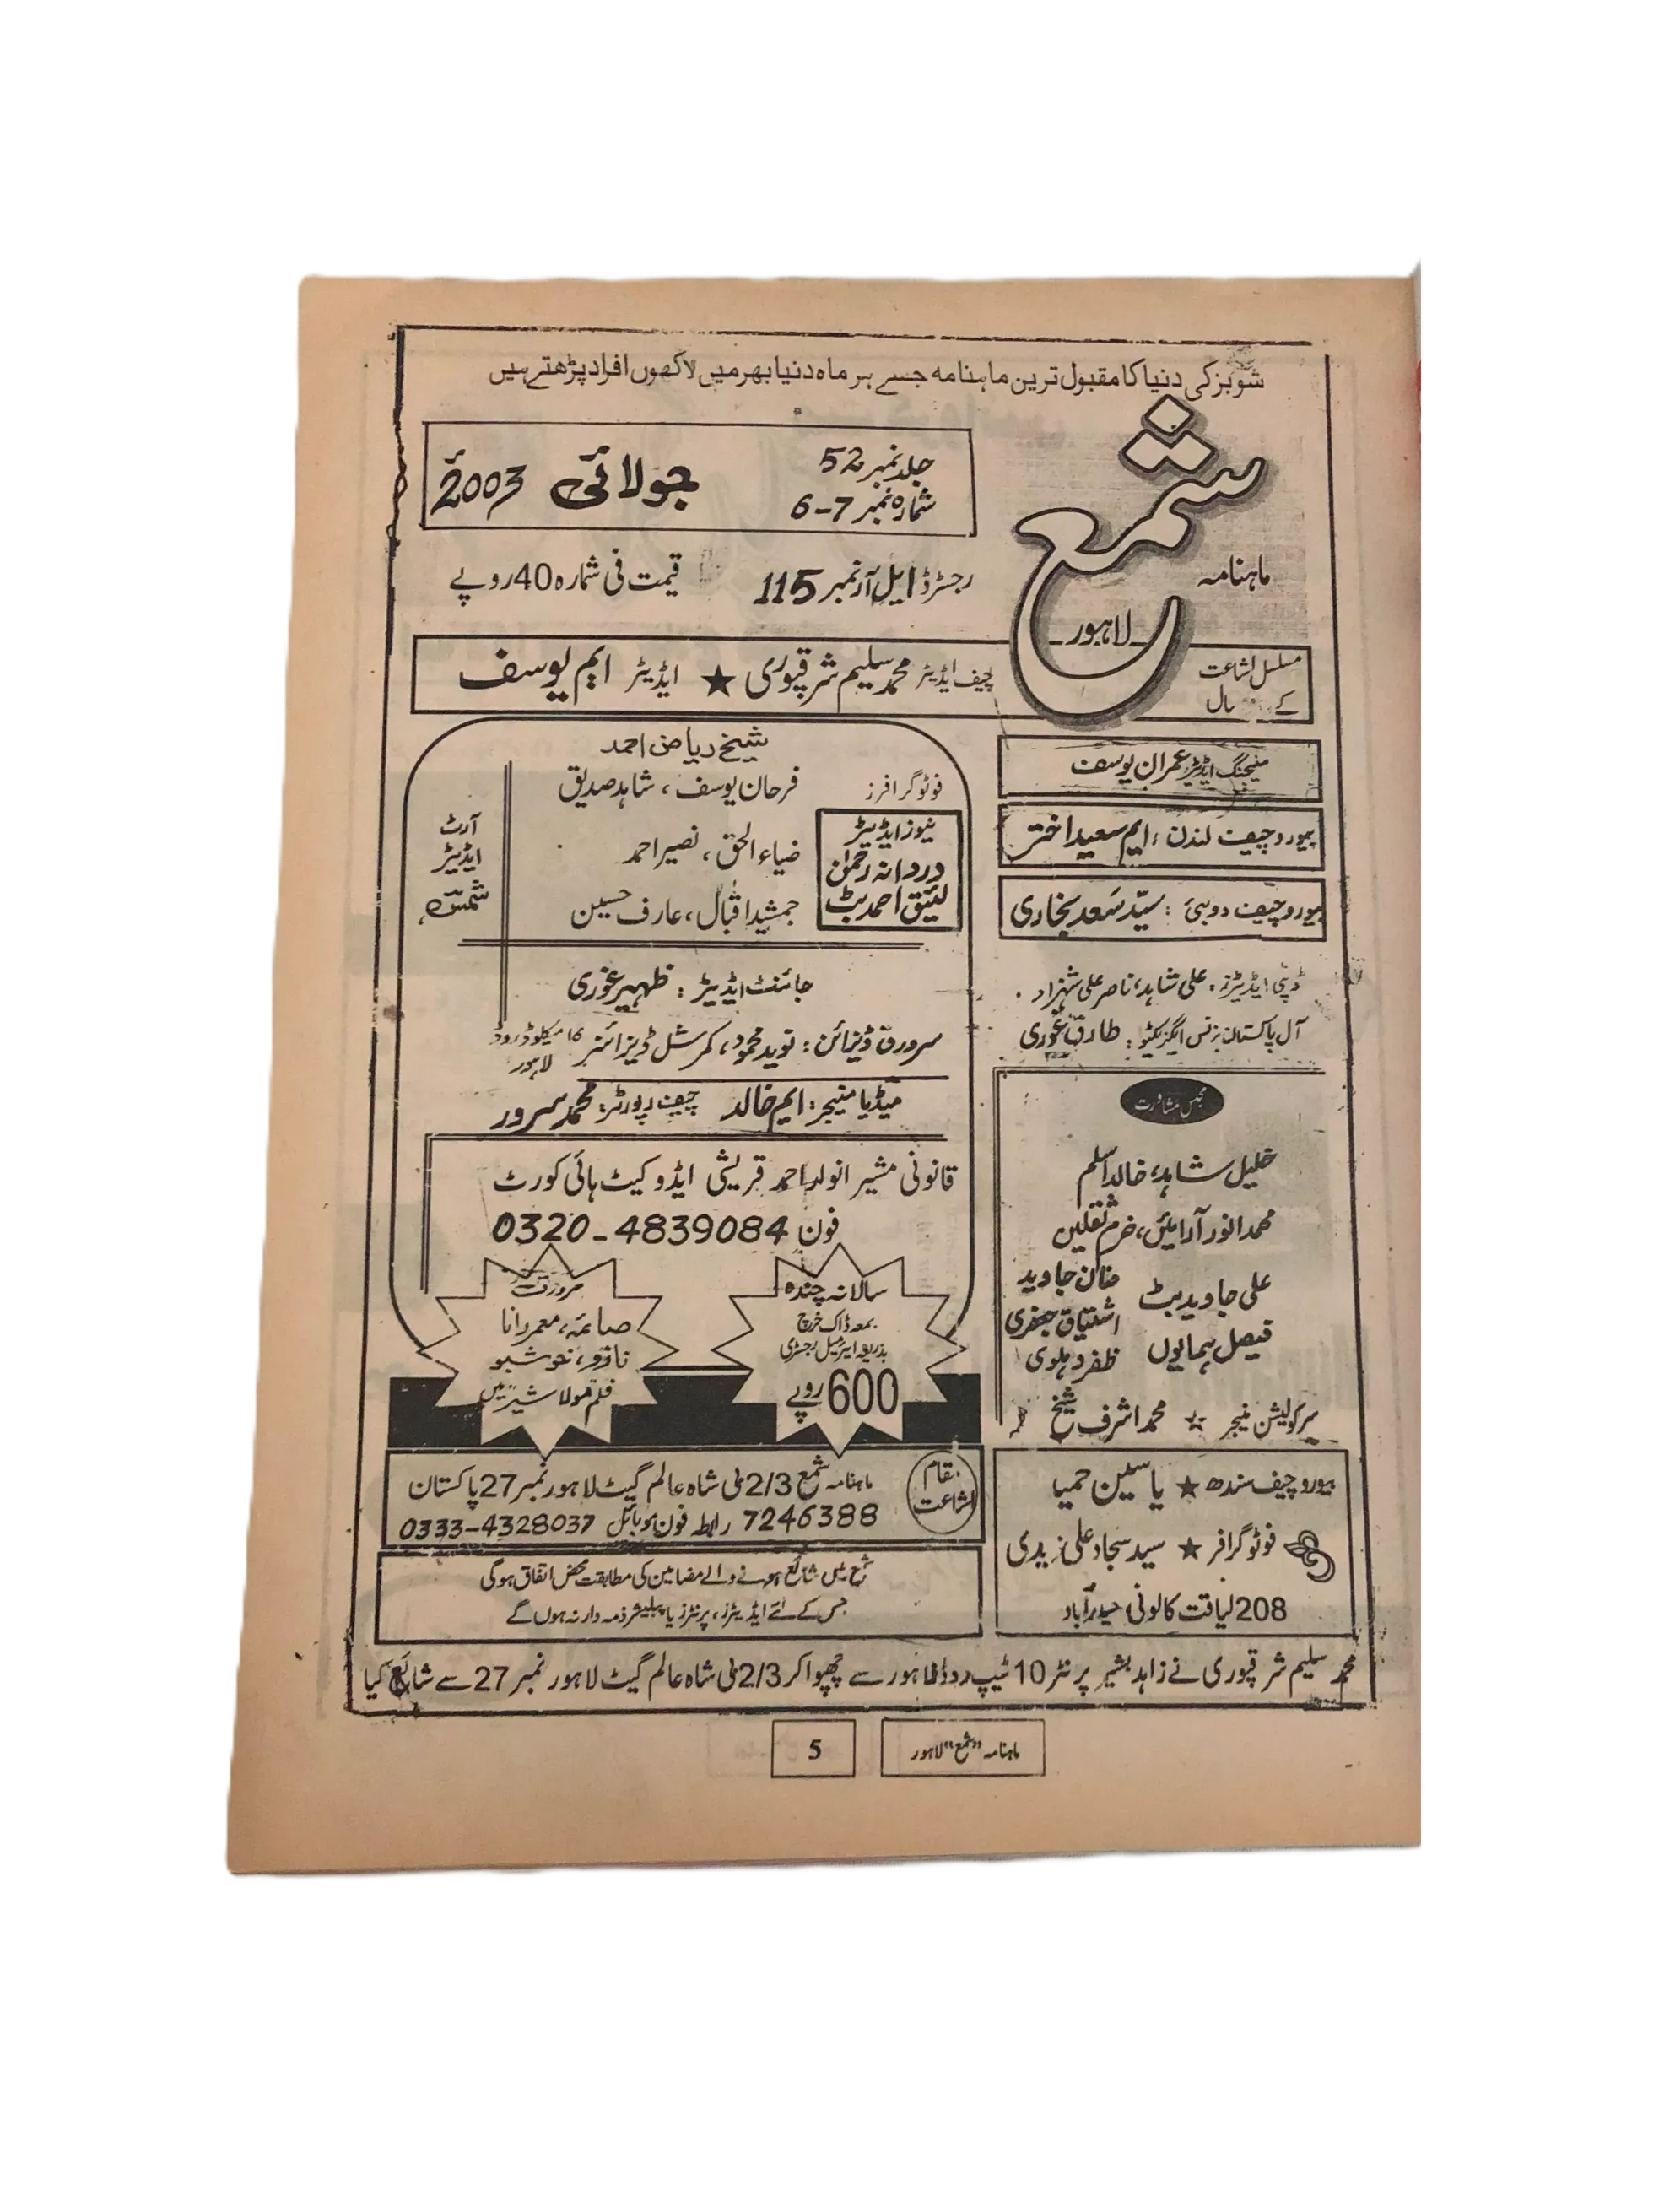 شوبز کی دنیا کا مقبول ترین ماہنامہ جسے ہر ماہ دنیا بھر میں لاکھوں افراد پڑھتے ہیں
ماہنامہ
شمع
لاہور
جلد نمبر 52
شمارہ نمبر 7-6
جولائی 2003ء
رجسٹرڈ ایل آر نمبر 115
قیمت فی شمارہ 40 روپے
مسلسل اشاعت
کے سال
چیف ایڈیٹر محمد سلیم شرقپوری ★ ایڈیٹر ایم یوسف
منیجنگ ایڈیٹر عمران یوسف
بیورو چیف لندن : ایم سعید اختر
بیورو چیف دوبئی : سیّد سَعد بخاری
ڈپٹی ایڈیٹرز: علی شاہد، ناصر علی شہزاد
آل پاکستان بزنس ایگزیکٹو: طارق غوری
مجلس مشاورت
خلیل شاہد، خالد اسلم
محمد انور آرائیں، خرم ثقلین
علی جاوید بٹ
فیصل ہمایوں
منان جاوید
اشتیاق جعفری
ظفر دہلوی
سرکولیشن منیجر ☆ محمد اشرف شیخ
بیورو چیف سندھ ★ یاسین حمیا
فوٹو گرافر ★ سید سجاد علی زیدی
208 لیاقت کالونی حیدرآباد
شیخ ریاض احمد
فوٹو گرافرز
فرحان یوسف، شاہد صدیق
ضیاء الحق، نصیر احمد
جمشید اقبال، عارف حسین
نیوز ایڈیٹر
دردانہ رحمٰن
لئیق احمد بٹ
آرٹ
ایڈیٹر
جائنٹ ایڈیٹر : ظہیر غوری
سرورق ڈیزائن : نوید محمود، کمرشل ڈیزائنر 16 میکلوڈ روڈ
لاہور
میڈیا منیجر: ایم خالد چیف رپورٹر: محمد سرور
قانونی مشیر انوار احمد قریشی ایڈوکیٹ ہائی کورٹ
فون 0320-4839084
سالانہ چندہ
بمعہ ڈاک خرچ
بذریعہ ایئر میل رجسٹری
600 روپے
سرورق
صائمہ، معمر رانا
نازو، خوشبو
فلم مولا شیر میں
بمقام
اشاعت
ماہنامہ شمع 2/3 ملی شاہ عالم گیٹ لاہور نمبر 27 پاکستان
7246388 رابطہ فون موبائل 0333-4328037
شمع میں شائع ہونے والے مضامین کی مطابقت محض اتفاق ہوگی
جس کے لئے ایڈیٹرز، پرنٹرز یا پبلیشر ذمہ دار نہ ہوں گے
محمد سلیم شرقپوری نے زاہد بشیر پرنٹر 10 ٹیپ روڈ لاہور سے چھپوا کر 2/3 ملی شاہ عالم گیٹ لاہور نمبر 27 سے شائع کیا
ماہنامہ "شمع" لاہور
5